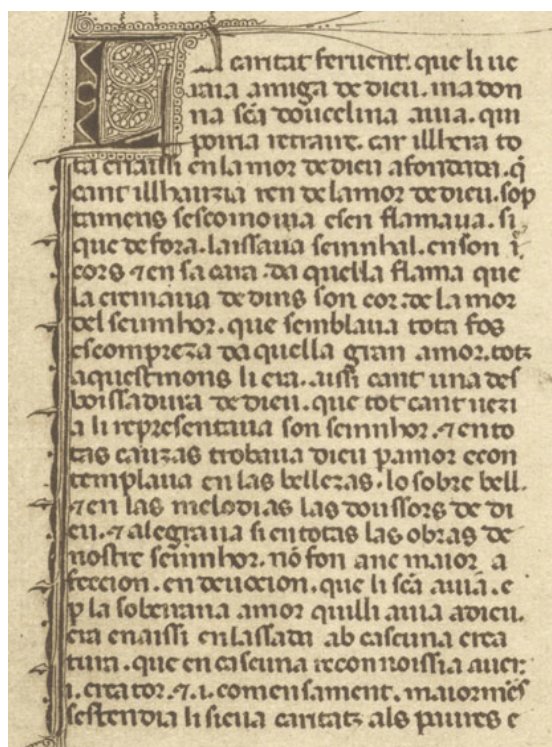 La caritat feruent. que li ue
raia amiga de dieu. ma don
na sc̃a doucelina auia. qui
poiria retraire. car illh era to
ta enaissi en la mor de dieu afondada. q̃
cant illh auzia ren de lamor de dieu. sop
tamens sescomouia e sen flamaua. si
que de fora. laissaua seinnhal. en son
cors ⁊ en sa cara. da quella flama que
la cremaua de dins son cor. de la mor
del seinnhor. que semblaua tota fos
escompreza da quella gran amor. totz
aquest mons li era. aissi cant una des
boissadura de dieu. que tot cant uezi
a li representaua son seinnhor. ⁊ en to
tas cauzas trobaua dieu p amor e con
templaua en las bellezas. lo sobre bell.
⁊ en las melodias las doussors de di
eu. ⁊ alegraua si en totas las obras de
nostre seinnhor. nõ fon anc maior a
feccion. en deuocion. que li sc̃a auia. e
p la sobeirana amor quilli auia a dieu.
era enaissi en lassada ab cascuna crea
tura. que en cascuna reconnoissia auer
.i. creator. ⁊ .i. comensament. maiormẽs
sestendia li sieua caritatz als paures e